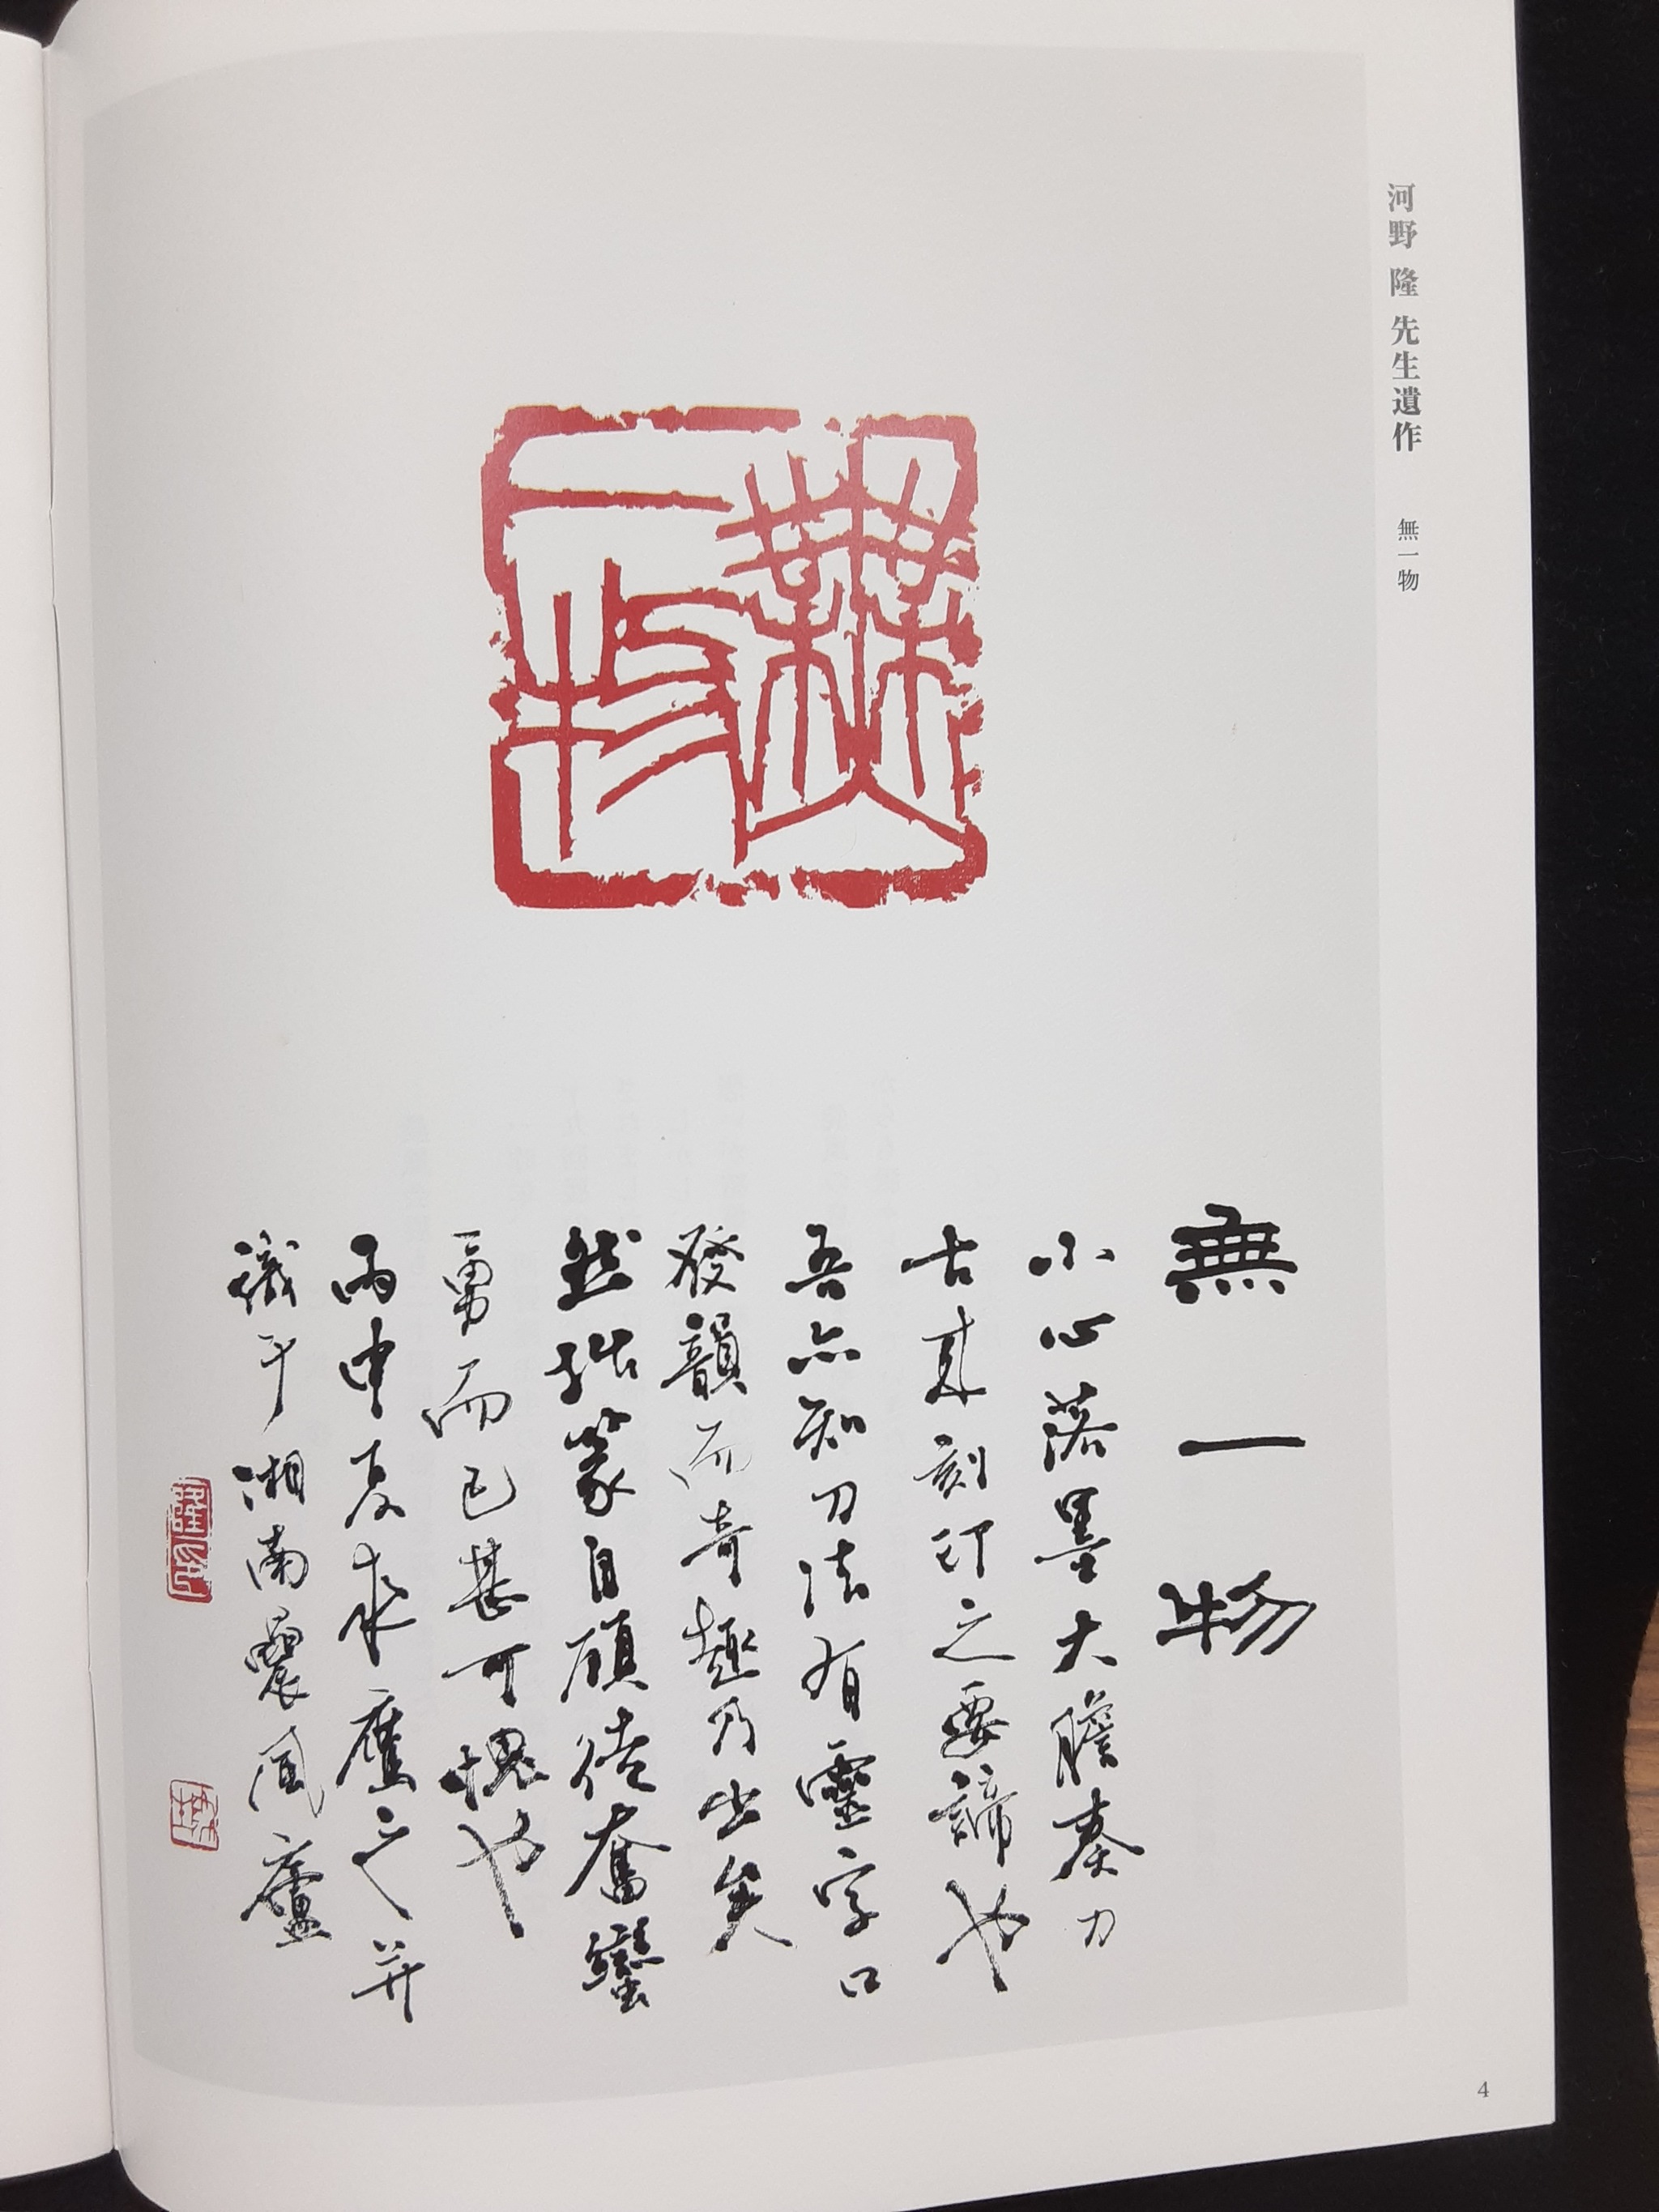 河野 隆 先生遺作 無一物
無一物
無一物
小心落墨大膽奏刀
古来刻印之要諦也
吾亦知刀法有靈字口
發韻而奇趣乃出矣
然拙篆自顧徒奮蠻
勇而已甚可愧也
丙申夏求應之并
識于湘南農風廬
隆印
4